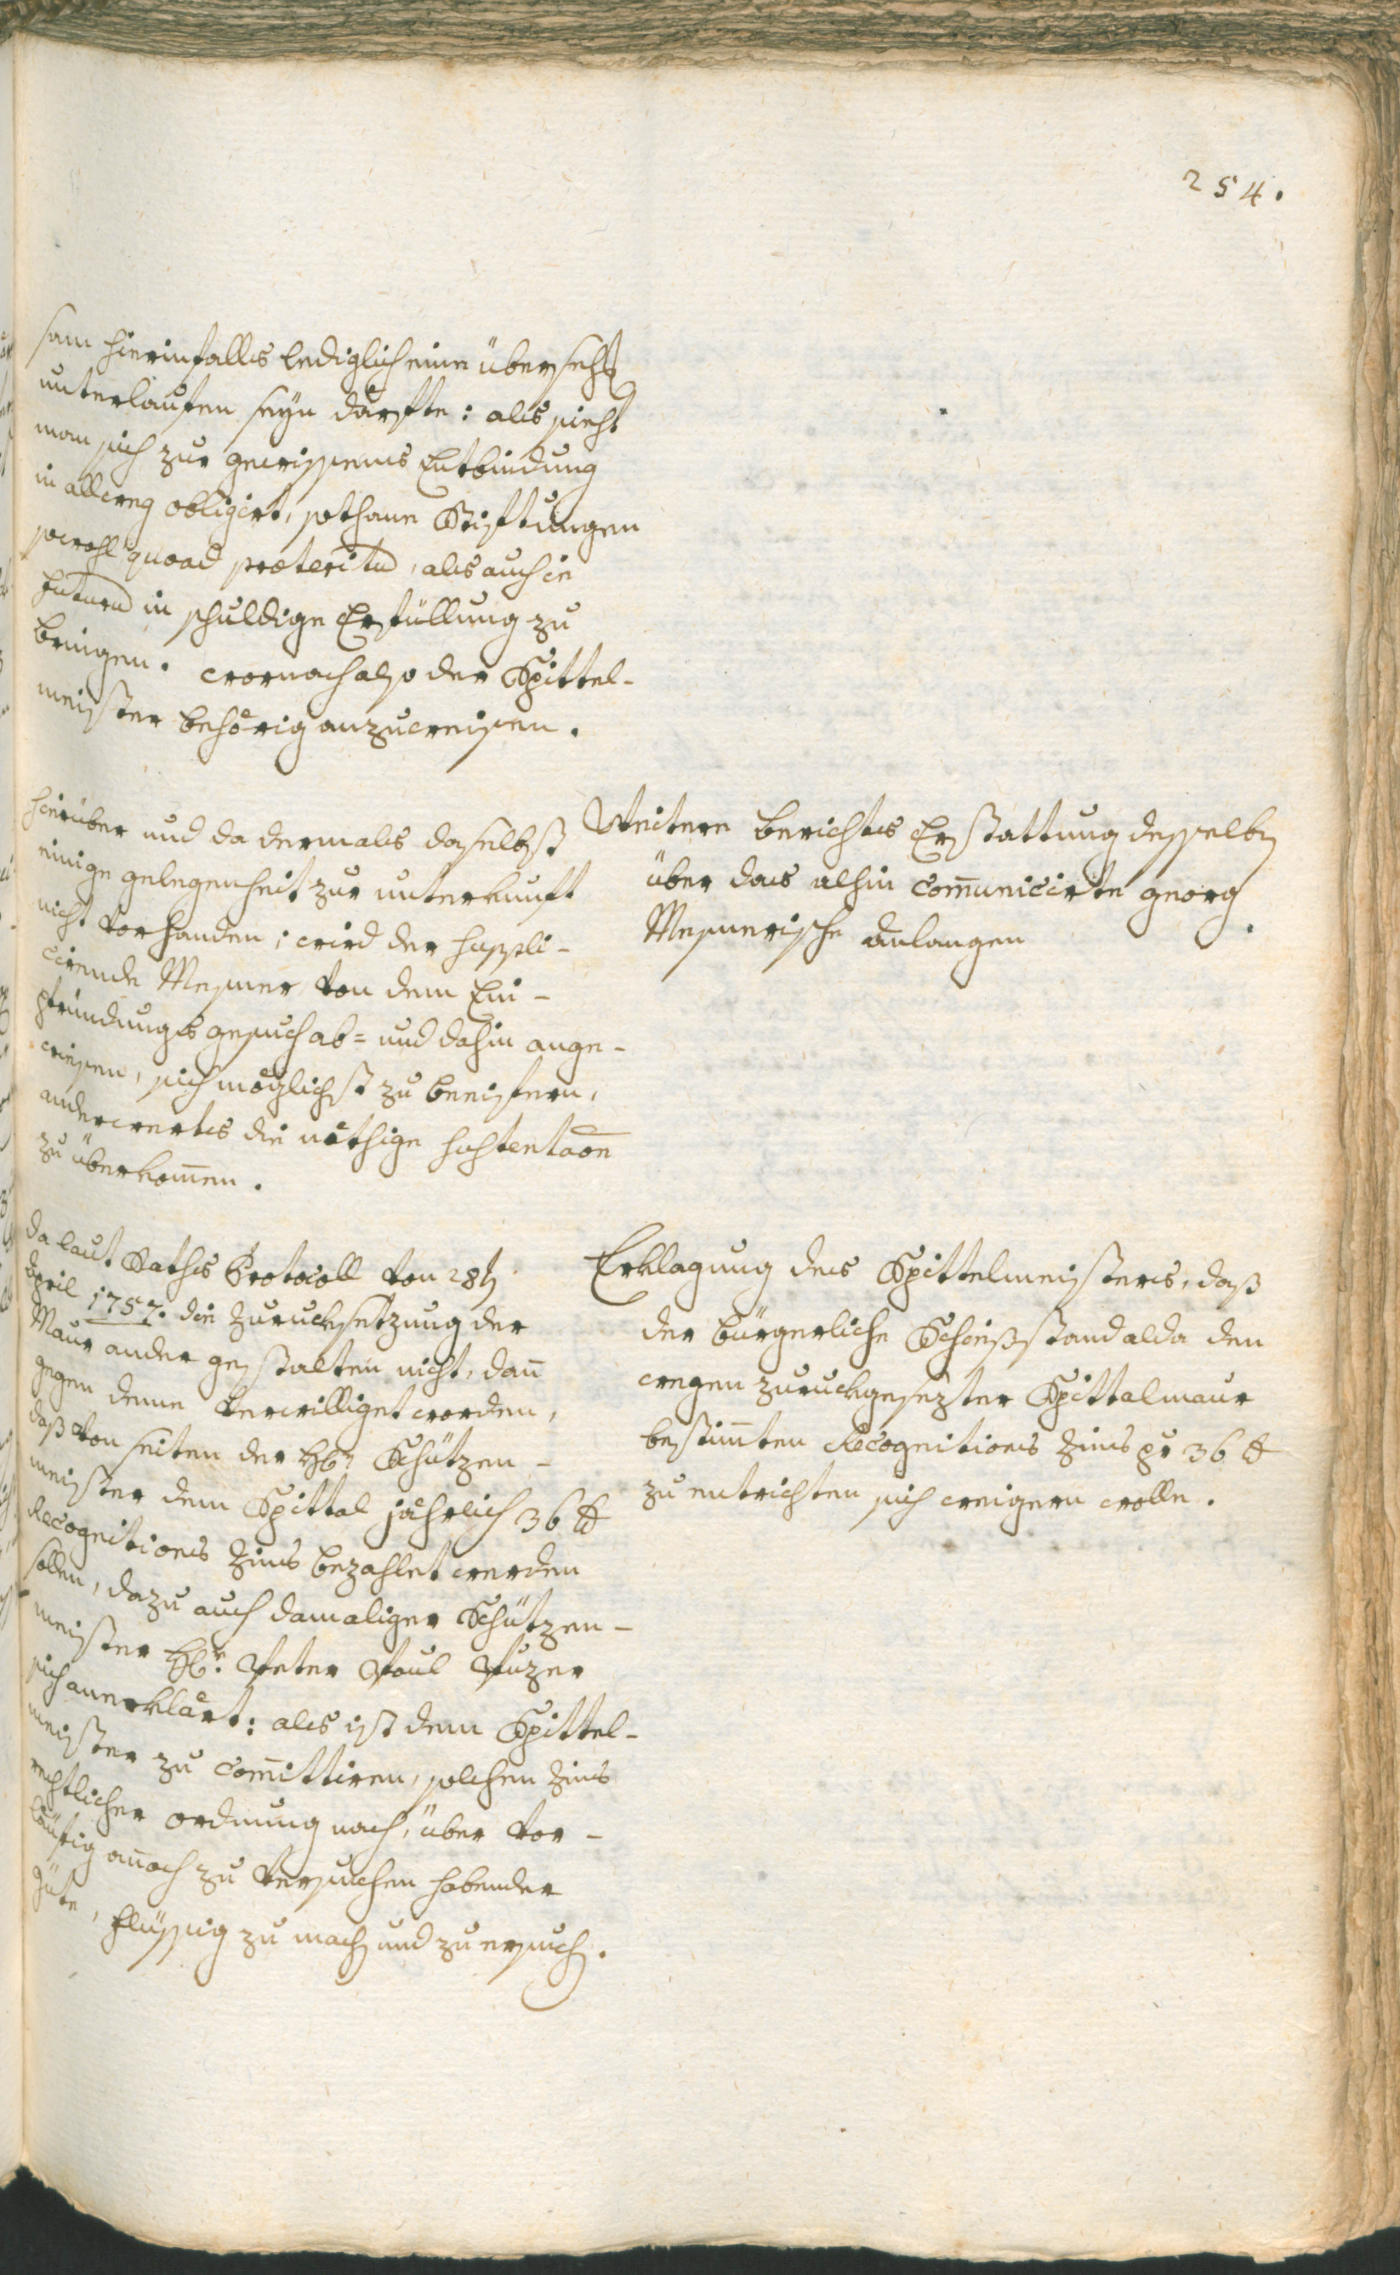 254.
sam hierinfalls lediglich eine übersehŋ
unterlaufen seyn därfte: als sieht
man sich zur gewissens Entbindung
in allweg obligirt, sothane Stiftungen
sowohl quoad præteritū, als auch in
futurū in schuldige Erfüllung zu
bringen. wornach also der Spittel-
meister behörig anzuweisen.
Hierüber und da dermals daselbst
einige gelegenheit zur unterkunft
nicht vorhanden; wird der suppli-
cirende Mesmer von dem Ein-
pfründungs gesuch ab= und dahin ange-
wiesen, sich möglichst zu beeifern,
anderwerts die nöthige sustentaōn
zu überkom̄en.
Weitere berichts Erstattung desselbŋ
über das alhin com̄unicirte georg
Mesmerische anlangen
da laut Raths Protocoll von 28ŋ
April 1757. die Zurucksetzung der
Maur ander gestalten nicht, dan̄
gegen deme verwilliget worden,
daß von seiten der H: Schützen-
meister dem Spittal jährlich 36 ₰
Recognitions Zins bezahlet werden
sollen, dazu auch damaliger Schützen-
meister H: Peter Paul
sich anerklärt: als ist dem Spittel-
meister zu com̄ittiren, solchen Zins
rechtlicher ordnung nach, über vor-
läufig an̄och zu versuchen habender
güte, flüssig zu machŋ und zu ersuchŋ.
Erklagung des Spittelmeisters, daß
der bürgerliche Schießstand alda den
wegen zuruckgesezter Spittalmaur
bestim̄ten Recognitions Zins pr 36 ₰
zu entrichten sich weigern wolle.